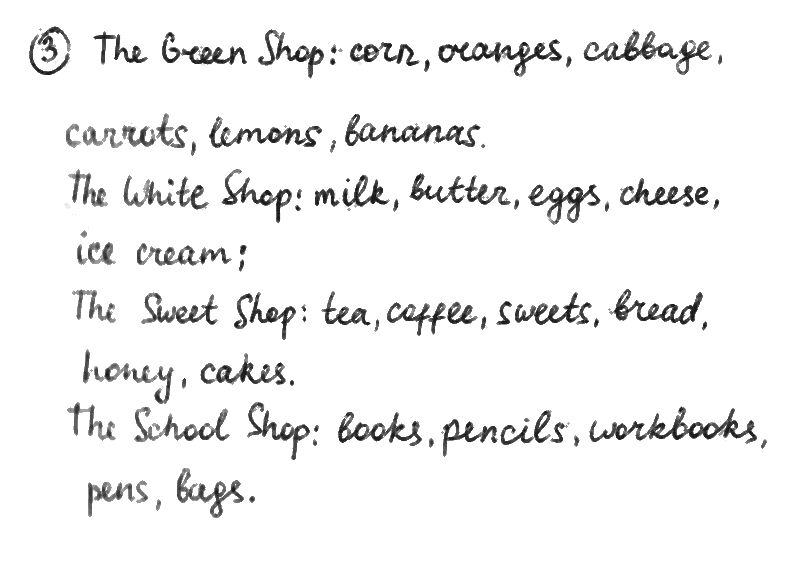 ③ The Green Shop: corn, oranges, cabbage,
carrots, lemons, bananas.
The White Shop: milk, butter, eggs, cheese,
ice cream;
The Sweet Shop: tea, coffee, sweets, bread,
honey, cakes.
The School Shop: books, pencils, workbooks,
pens, bags.